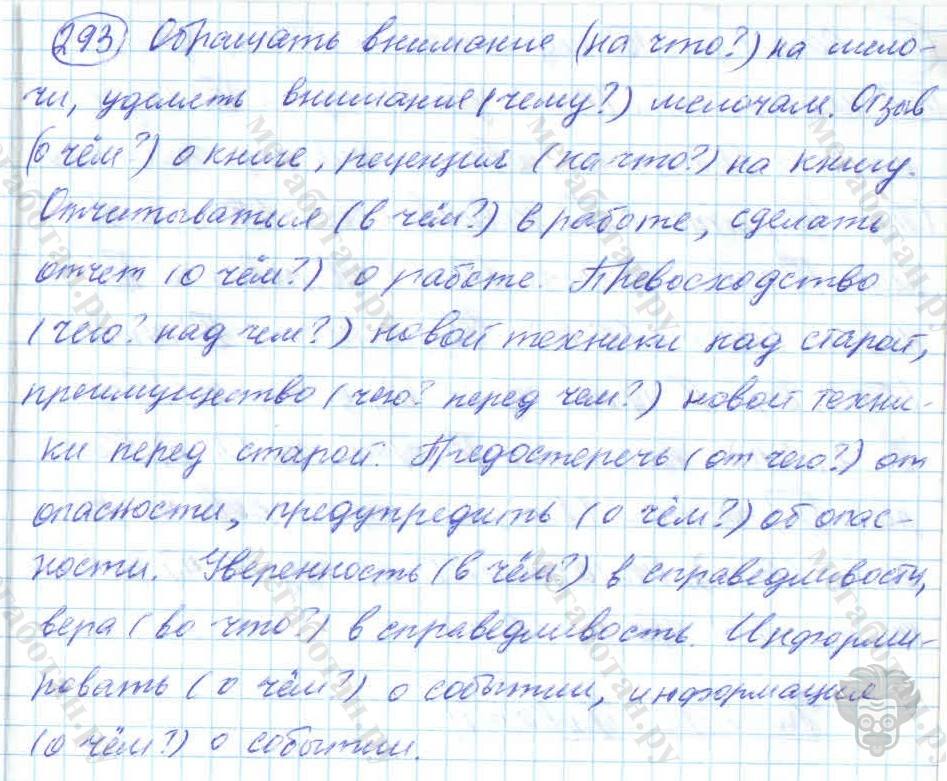 293 Обращать внимание (на что?) на мело-
чи, уделять внимание (чему?) мелочам. Отзыв
(о чём?) о книге, рецензия (на что?) на книгу.
Отчитываться (в чём?) в работе, сделать
отчет (о чём?) о работе. Превосходство
(чего? над чем?) новой техники над старой,
преимущество (чего? перед чем?) новой техни-
ки перед старой. Предостеречь (от чего?) от
опасности, предупредить (о чём?) об опас-
ности. Уверенность (в чём?) в справедливости,
вера (во что?) в справедливость. Информи-
ровать (о чём?) о событии, информация
(о чём?) о событии.
мегаботан.ру